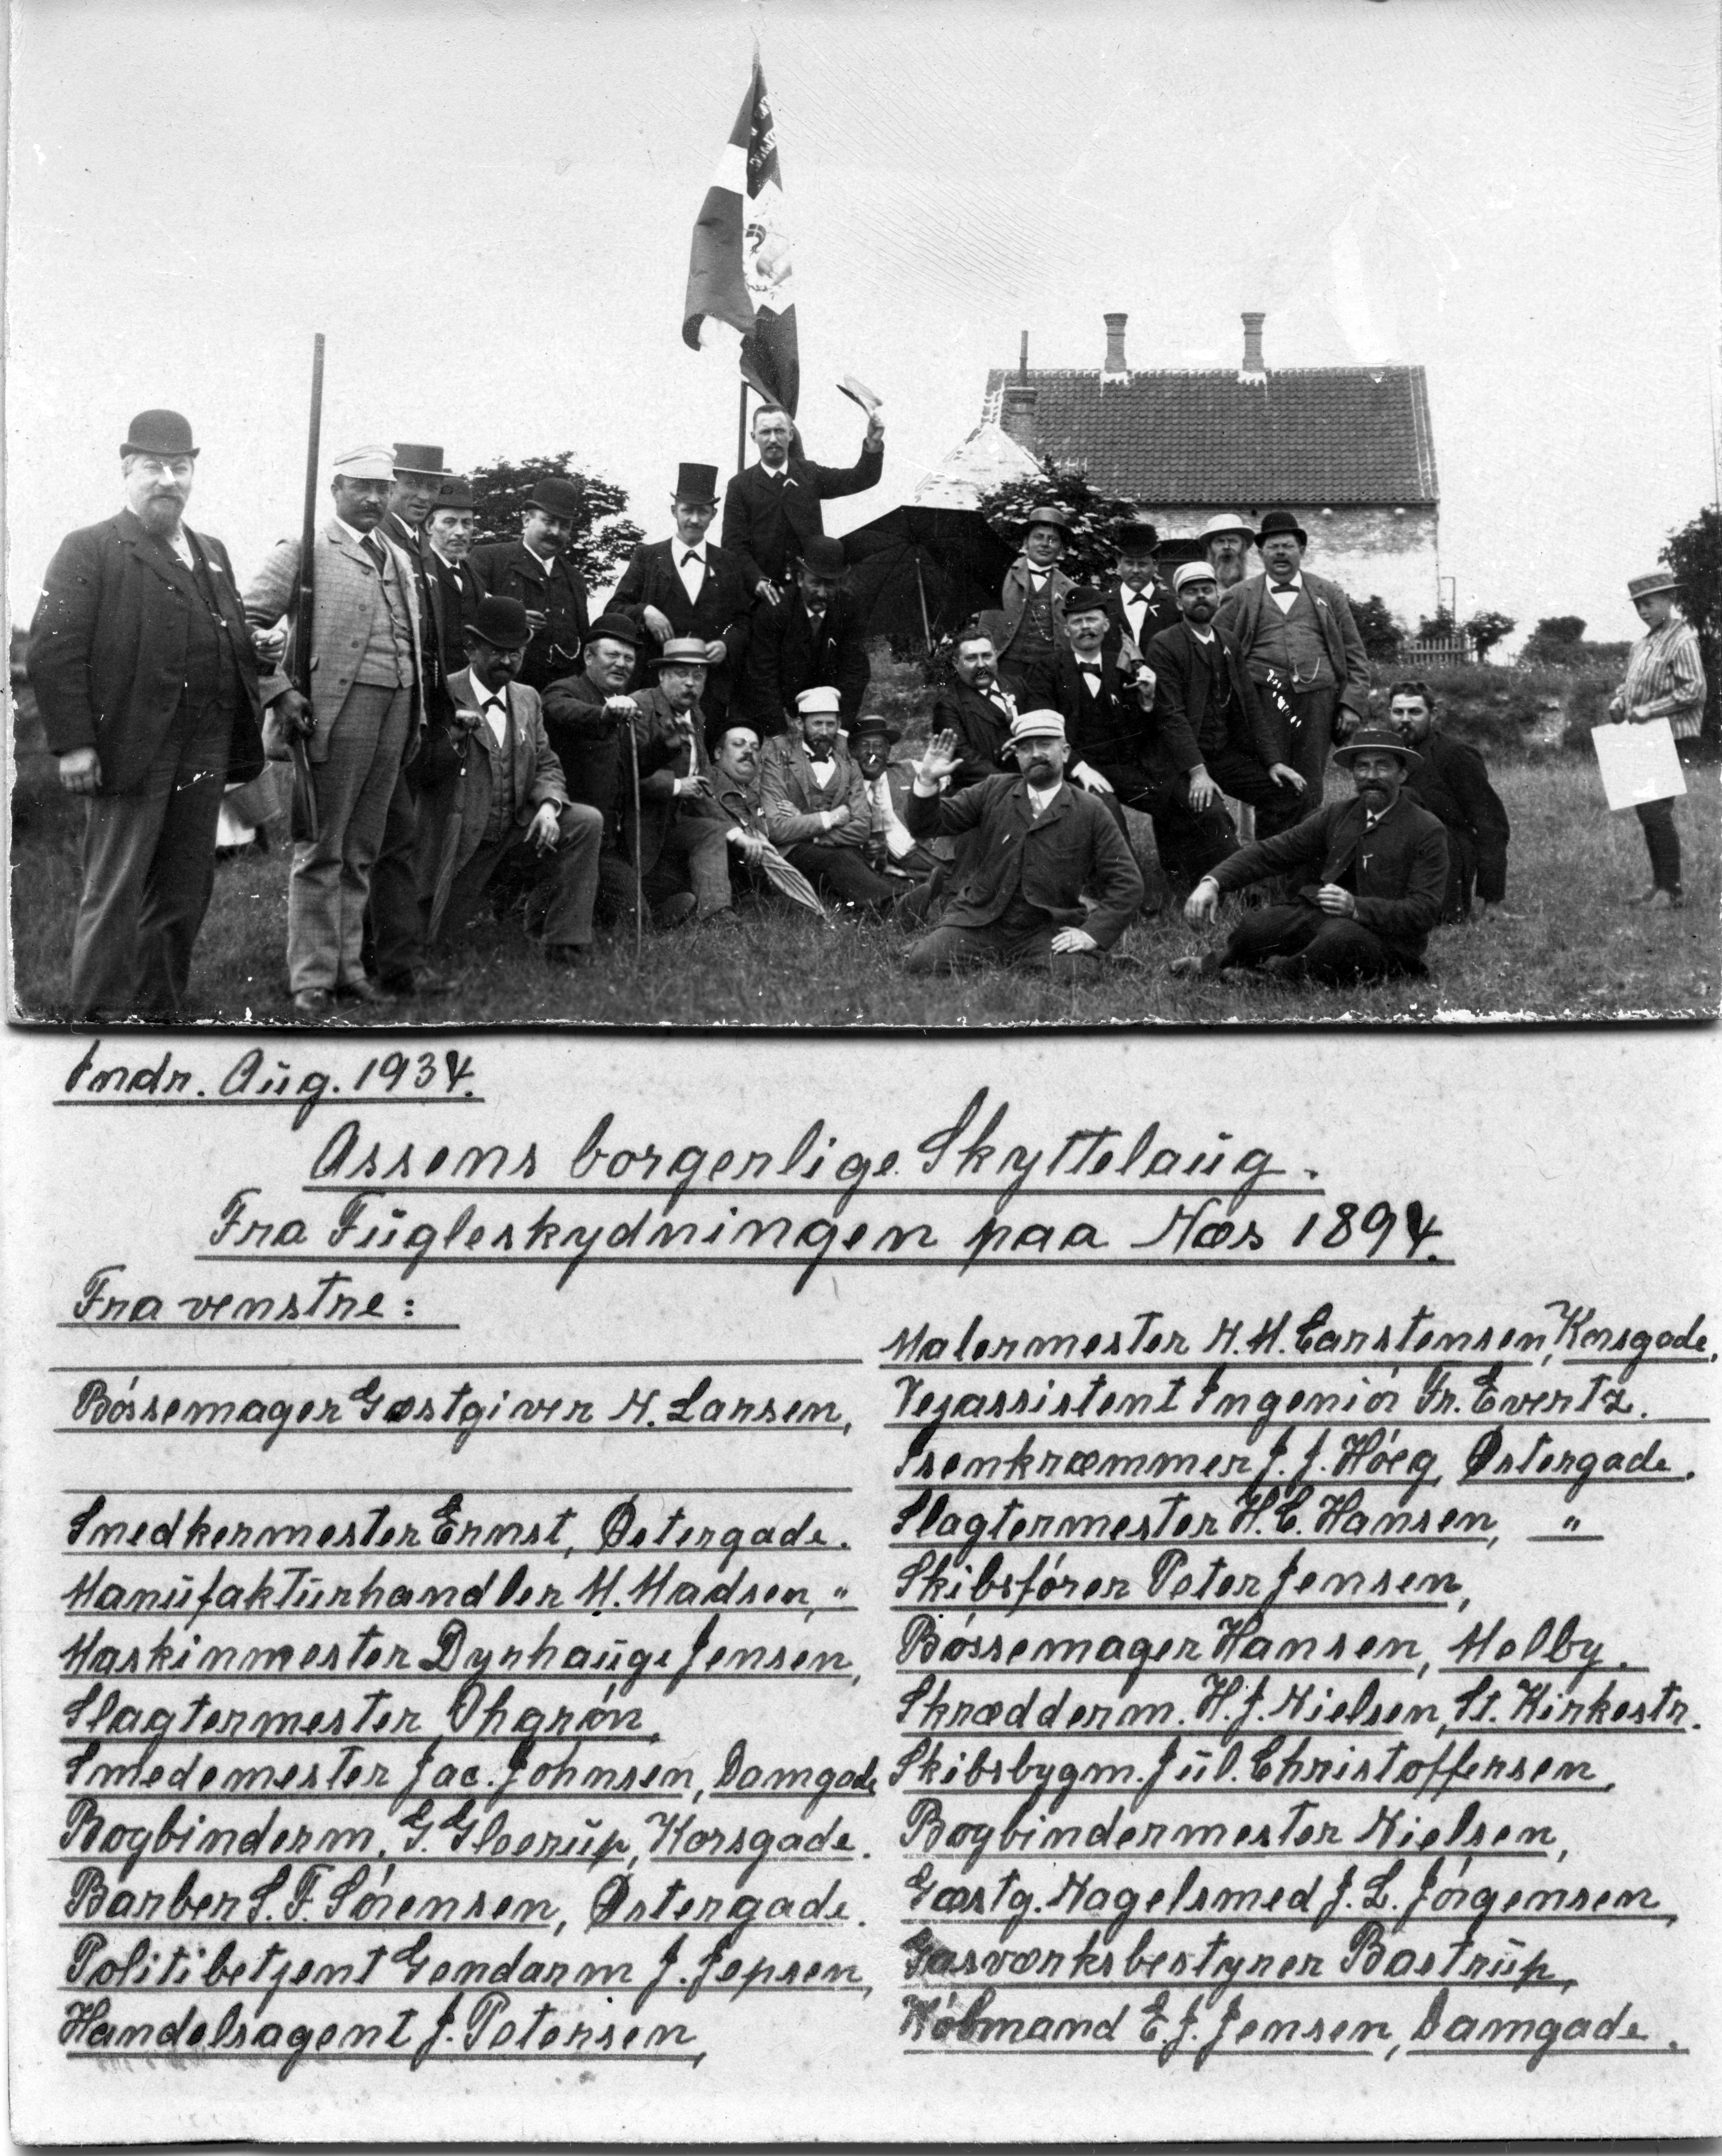 Indr. Aug. 1934.
Assens borgerlige Skyttelaug.
Fra Fugleskydningen paa Næs 1894.
Fra venstre:
Bóssemager Gæstgiver N. Larsen,
Snedkermester Ernst, Østergade.
Manufakturhandler M. Madsen, "
Maskinmester Dyrhauge Jensen,
Slagtermester Ohgrón,
Smedemester Jac. Johnsen, Damgade
Bogbinderm. G. Gloerup, Korsgade.
Barber S. F. Sórensen, Østergade.
Politibetjent Gendarm J. Jepsen,
Handelsagent J. Petersen,
Malermester N. M. Carstensen, Korsgade.
Vejassistent Ingeniór Fr. Evertz.
Isenkræmmer J. J. Hóeg, Østergade.
Slagtermester H. C. Hansen, "
Skibsfórer Peter Jensen,
Bóssemager Hansen, Melby.
Skrædderm. H. J. Nielsen, St. Kirkestr.
Skibsbygm. Jul. Christoffersen,
Bogbindermester Nielsen,
Gæstg. Nagelsmed J. L. Jórgensen,
Gasværksbestyrer Bastrup,
Kóbmand E. J. Jensen, Damgade.